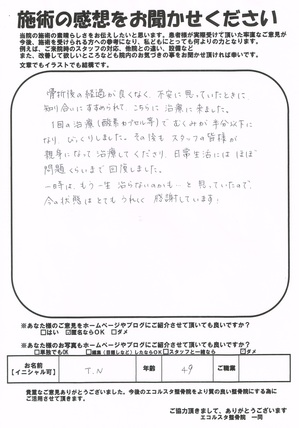 施術の感想をお聞かせください
当院の施術の素晴らしさをお伝えしたいと思います。患者様が実際受けて頂いた率直なご意見が
今後、施術を受けられる方への参考になり、私どもにとっても何よりの力となります。
例えば、ご来院時のスタッフの対応、他院との違い、設備など
また、改善して欲しいところなども院内のお気づきの事をお聞かせ頂ければ幸いです。
文章でもイラストでも結構です。
骨折後の経過が良くなく、不安に思っていたときに
知り合いにすすめられて、こちらに治療に来ました。
1回の治療(酸素カプセル等)でむくみが半分以下に
なり、びっくりしました。その後もスタッフの皆様が
親身になって治療してくださり、日常生活にはほぼ
問題くらいまで回復しました。
一時は、もう一生治らないのかも…と思っていたので、
今の状態はとてもうれしく感謝しています!
※あなた様のご意見をホームページやブログにご紹介させて頂いても良いですか?
□はい ☑匿名ならOK □ダメ
※あなた様のお写真もホームページやブログにご紹介させて頂いても良いですか?
□単独でもOK □編集(目隠しなど)したならOK □スタッフと一緒なら ☑ダメ
お名前
【イニシャル可】
T.N
年齢
49
ご職業
貴重なご意見ありがとうございました。今後のエコルスタ整骨院をより質の良い整骨院にする為に
ご活用させて頂きます。
ご協力頂きまして、ありがとうございます
エコルスタ整骨院 一同